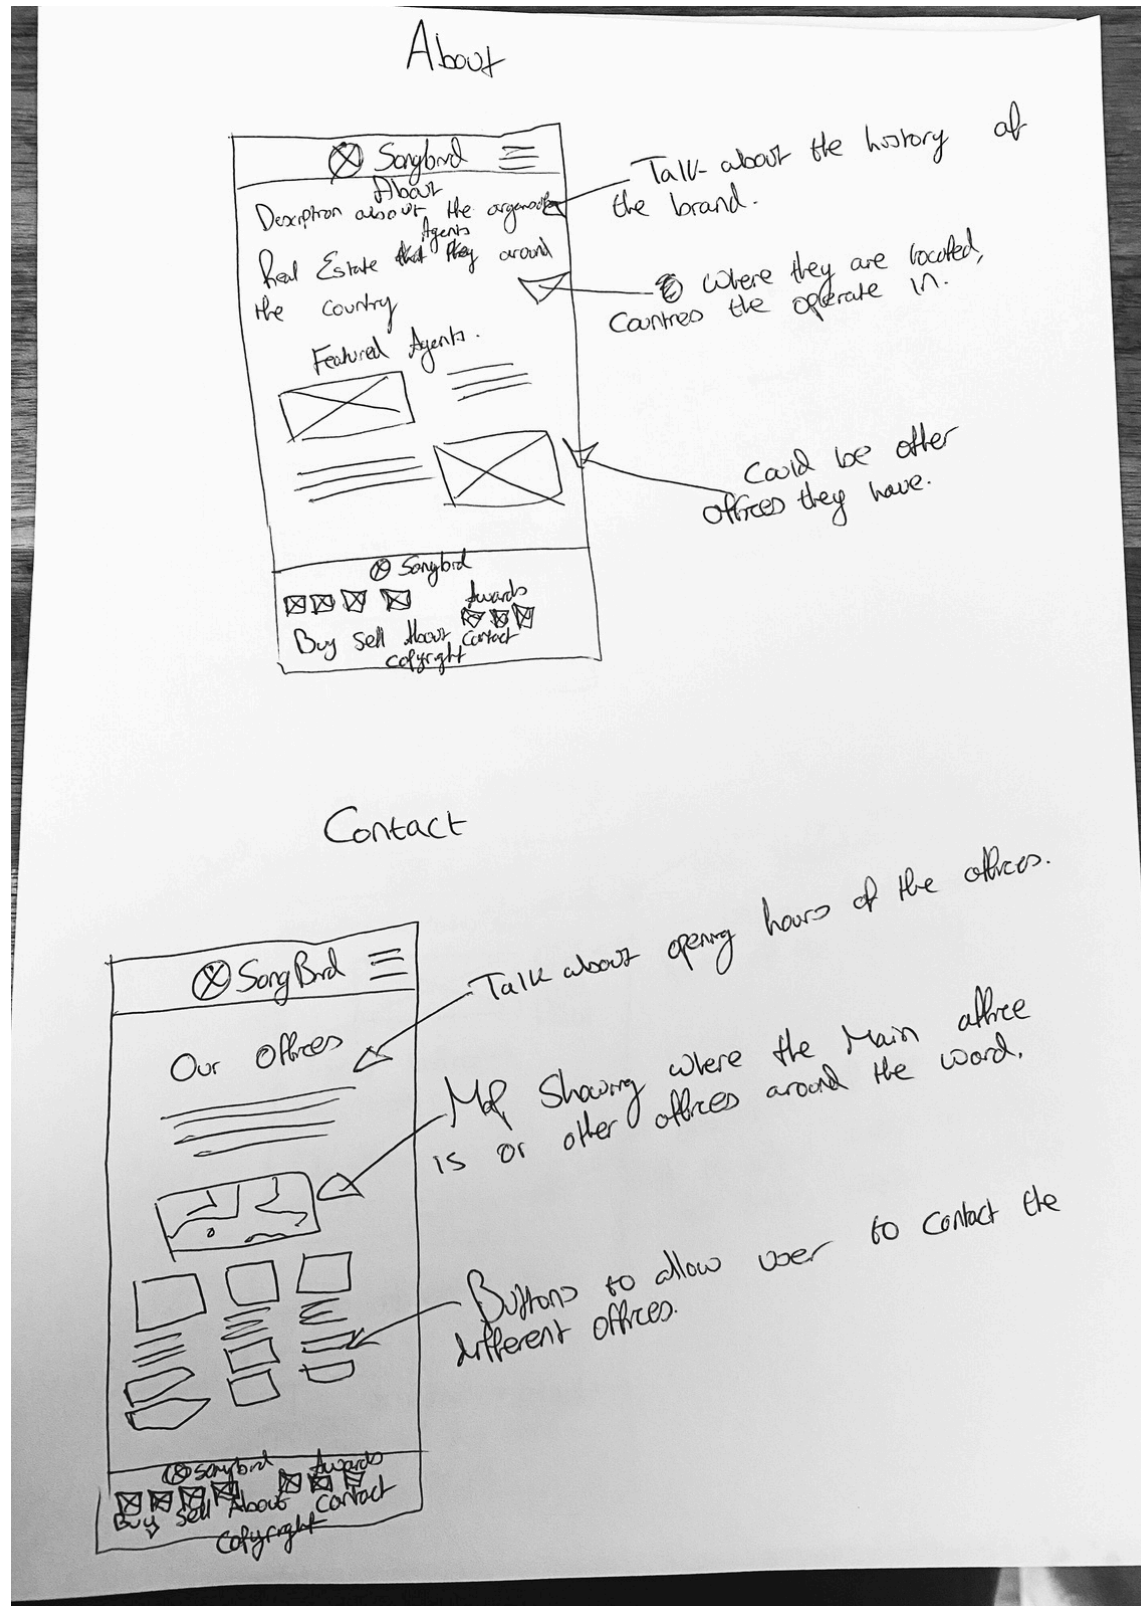 About
Songbird
About
Description about the
Agents
Real Estate they around
the country
Featured Agents.
Songbird
Awards
Buy Sell About Contact
Copyright
Talk about the history of
the brand.
Where they are located,
Countries the operate in.
Could be other
offices they have.
Contact
SongBird
Our Offices
Songbird Awards
Buy Sell About Contact
Copyright
Talk about opening hours of the offices.
Map Showing where the Main office
is or other offices around the world.
Buttons to allow user to contact the
different offices.